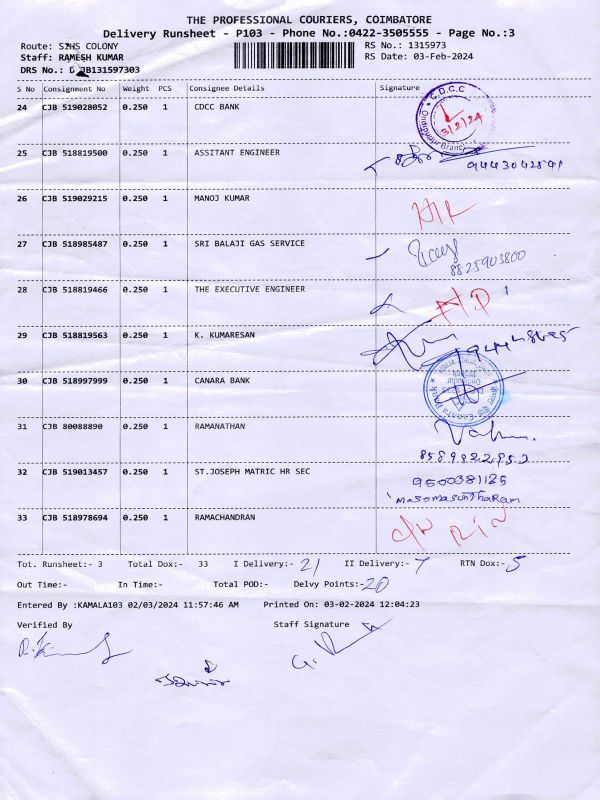 THE PROFESSIONAL COURIERS, COIMBATORE
Delivery Runsheet - P103 - Phone No.:0422-3505555 - Page No.:3
Route: SIHS COLONY RS No.: 1315973
Staff: RAMESH KUMAR RS Date: 03-Feb-2024
DRS No.: JB131597303
S No Consignment No Weight PCS Consignee Details Signature
24 CJB 519028052 0.250 1 CDCC BANK C.D.C.C 3/2/24
25 CJB 518819500 0.250 1 ASSITANT ENGINEER 9443042541
26 CJB 519029215 0.250 1 MANOJ KUMAR
27 CJB 518985487 0.250 1 SRI BALAJI GAS SERVICE
8825903800
28 CJB 518819466 0.250 1 THE EXECUTIVE ENGINEER
29 CJB 518819563 0.250 1 K. KUMARESAN
30 CJB 518997999 0.250 1 CANARA BANK
31 CJB 80088890 0.250 1 RAMANATHAN
32 CJB 519013457 0.250 1 ST.JOSEPH MATRIC HR SEC
33 CJB 518978694 0.250 1 RAMACHANDRAN
Tot. Runsheet:- 3 Total Dox:- 33 I Delivery:- 21 II Delivery:- 7 RTN Dox:- 5
Out Time:- In Time:- Total POD:- Delvy Points:- 20
Entered By :KAMALA103 02/03/2024 11:57:46 AM Printed On: 03-02-2024 12:04:23
Verified By Staff Signature